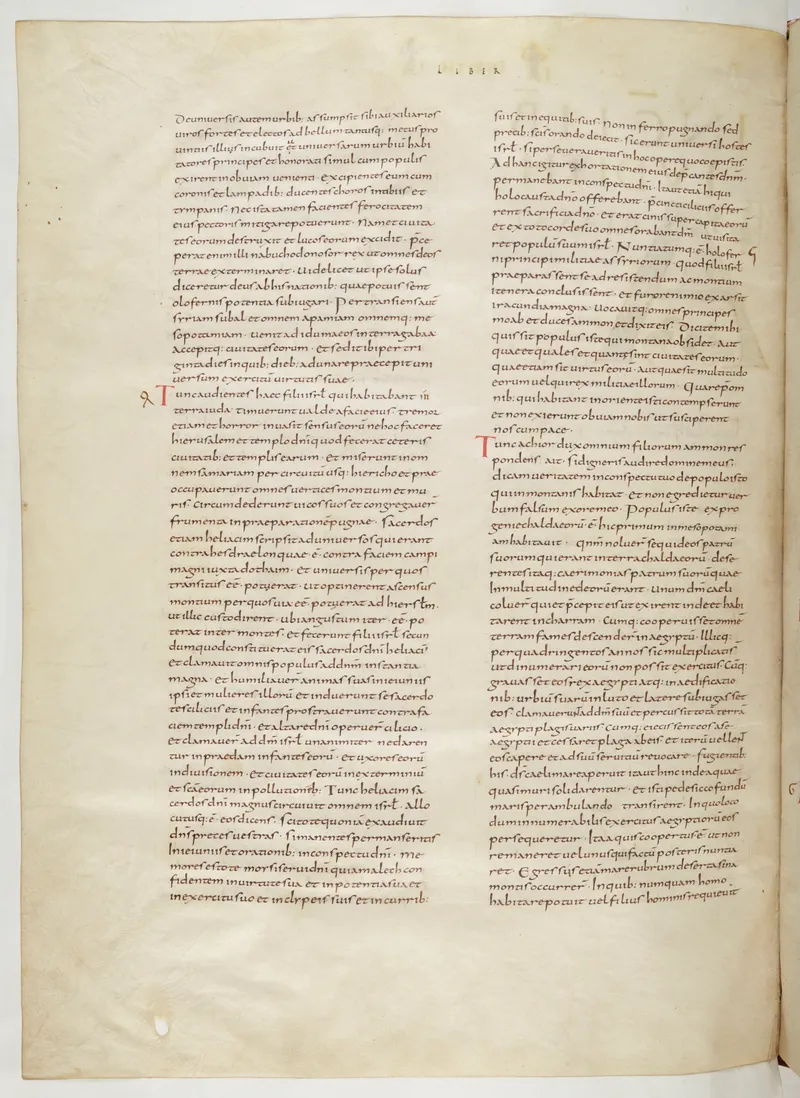 LIBER
De uniuersis autem urbib: assumpsit sibi auxiliarios
uiros fortes et electos ad bellum tantusq: metus pro
uinciis illius incubuit ut uniuersarum urbiū habi
tatores principes et honorati simul cum populis
exirent in obuiam uenienti excipientes eum cum
coronis et lampadib: ducentes choros in tibiis et
tympanis. Nec ista tamen facientes ferocitatem
eius pectoris mitigare potuerunt. Nam et ciuita
tes eorum destruxit et lucos eorum excidit. p̄ce
perat enim illi nabuchodonosor rex ut omnes deos
terrae exterminaret. Uidelicet ut ipse solus
diceretur deus ab his nationib: quae potuissent
olofernis potentia subiugari. Pertransiens aūt
syriam subal et omnem apamiam omnemq: me
sopotamiam. uenit ad idumaeos in terra gabaa.
Accepitq: ciuitates eorum. et sedit ibi per tri
ginta dies in quib: dieb: adunare praecepit uni
uersum exercitū uirtutis suae.
Tunc audientes haec filii isrł qui habitabant in
terra iuda. timuerunt ualde a facie eius. tremor
etiam et horror inuasit sensus eorū ne hoc faceret
hierusalem et templo dn̄i quod fecerat ceteris
ciuitatib: et templis earum. et miserunt in om
nem samariam per circuitū usq: hiericho et prae
occupauerunt omnes uertices montium et mu
ris circumdederunt uicos suos et congregauer̄
frumenta in praeparationē pugnae. sacerdos
etiam heliacim scripsit ad uniuersos qui erant
contra hesdraelon quae ē contra faciem campi
magni iuxta dothain. et uniuersis per quos
transitus eē poterat. ut optinerent ascensus
montium per quos uia eē poterat ad hierslm̄.
ut illic custodirent. ubi angustum iter eē po
terat inter montes. et fecerunt filii isrł secun
dum quod constituerat eis sacerdos dn̄i heliaci
et clamauit omnis populus ad dnm̄ instantia
magna. et humiliauer̄ animas suas in ieiuniis
ipsi et mulieres illorū et induerunt se sacerdo
tes ciliciis et infantes prostrauerunt contra fa
ciem templi dn̄i. et altare dn̄i operuer̄ cilicio.
et clamauer̄ ad dnm̄ isrł unanimiter ne daren
tur in praedam infantes eorū. et uxores eorū
in diuisionem. et ciuitates eorū in exterminiū
et sc̄a eorum in pollutionē: Tunc heliacim sa
cerdos dn̄i magnus circuiuit omnem isrł. Allo
cutusq: ē eos dicens. scitote quoniā exaudiuit
dn̄s preces uestras. si manentes permanseritis
In ieiuniis et orationib: in conspectu dn̄i. me
mores estote morsi serui dn̄i qui amalech con
fidentem in uirtute sua et in potentia sua et
in exercitu suo et in clypeis suis et in currib:
suis et in equitib: suis. non in ferro pugnando sed
precib: scīs orando deiecit. sic erunt uniuersi hostes
isrł. si perseueraueritis in hoc opere quo coepistis
Ad hanc igitur exhortationem eius dep̄cantes dnm̄.
permanebant in conspectu dn̄i. Ita ut etiā hi qui
holocausta dn̄o offerebant. p̄cincti ciliciis offer
rent sacrificia dn̄o. et erat cinis super capita eorū
et ex toto corde suo omnes orabant dm̄. ut uisita
ret populū suum isrł. Nuntiatumq: ē holofer
ni principi militiae assyriorum. quod filii isrł
praeparassent se ad resistendum ac montium
itenera conclusissent. et furore nimio exarsit
iracundia magna. Uocauitq: omnes principes
moab et duces ammon et dixit eis. Dicite mihi
quis sit populus iste qui montana obsidet. Aut
quae et quales et quantę sint ciuitates eorum.
quae etiam sit uirtus eorū. Aut quae sit multitudo
eorum uel qui rex militiae illorum. Quare p̄ om
nib: qui habitant in oriente isti contempserunt
et non exierunt obuiam nobis ut susciperent
nos cum pace.
Tunc achior dux omnium filiorum ammon res
pondens ait. si digneris audire domine meus.
dicam ueritatem in conspectu tuo de populo isto
qui in montanis habitat et non egredietur uer
bum falsum ex ore meo. Populus iste ex pro
genie chaldaeorū ē. hic primum in mesopotami
am habitauit. qnm̄ noluer̄ sequi deos patrū
suorum qui erant in terra chaldaeorū. dese
rentes itaq: caerimonias patrum suorū quae
In multitudine deorū erant. unum dm̄ caeli
coluer̄ qui et p̄cepit eis ut exirent inde et habi
tarent in charram. Cumq: cooperuisset omnē
terram fames descender̄ in aegyptū. Illicq:
per quadringentos annos sic multiplicati s̄
ut dinumerari eorū non possit exercitus. Cūq:
grauasset eos rex aegypti atq: in aedificatio
nib: urbiū suarū in luto et latere subiugasset
eos clamauer̄ ad dm̄ suū et percussit totā terrā
aegypti plagis uariis. Cumq: eiecissent eos a se
aegyptii et cessaret plaga ab eis et iterū uellent
eos capere et ad suū seruitiū reuocare. fugientib:
his ds̄ caeli mare aperuit ita ut hinc inde aquae
quasi muri solidarentur. et isti pede sicco fundū
maris perambulando transirent. In quo loco
dum innumerabilis exercitus aegyptiorū eos
persequeretur. Ita aquis coopertus ē. ut non
remaneret uel unus qui factū posteris nuntia
ret. Egressi uero etiā mare rubrum deserta sina
montis occuper̄. In quib: numquam homo
habitare potuit uel filius hominis requieuit